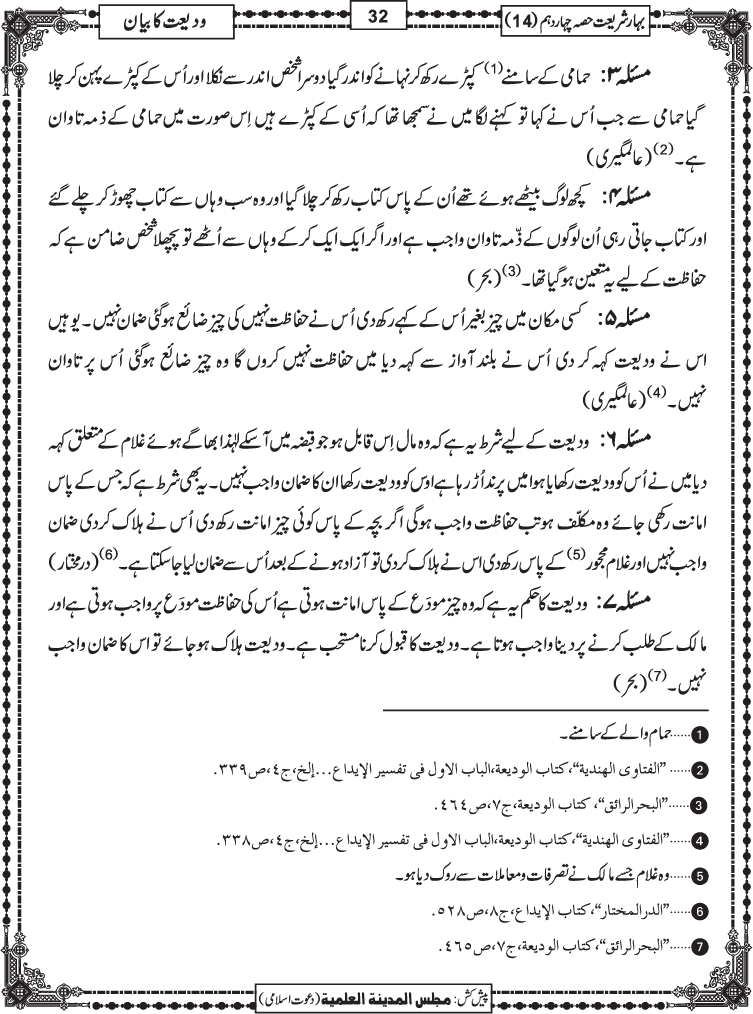 بہارِ شریعت حصہ چہاردہم (14)
32
ودیعت کا بیان
مسئلہ ۳: حمامی کے سامنے(1) کپڑے رکھ کر نہانے کو اندر گیا دوسرا شخص اندر سے نکلا اور اُس کے کپڑے پہن کر چلا
گیا حمامی سے جب اُس نے کہا تو کہنے لگا میں نے سمجھا تھا کہ اُسی کے کپڑے ہیں اِس صورت میں حمامی کے ذمہ تاوان
ہے۔(2) (عالمگیری)
مسئلہ ۴: کچھ لوگ بیٹھے ہوئے تھے اُن کے پاس کتاب رکھ کر چلا گیا اور وہ سب وہاں سے کتاب چھوڑ کر چلے گئے
اور کتاب جاتی رہی اُن لوگوں کے ذِمہ تاوان واجب ہے اور اگر ایک ایک کرکے وہاں سے اُٹھے تو پچھلا شخص ضامن ہے کہ
حفاظت کے لیے یہ متعین ہوگیا تھا۔(3) (بحر)
مسئلہ ۵: کسی مکان میں چیز بغیر اُس کے کہے رکھ دی اُس نے حفاظت نہیں کی چیز ضائع ہوگئی ضمان نہیں۔ یوہیں
اس نے ودیعت کہہ کر دی اُس نے بلند آواز سے کہہ دیا میں حفاظت نہیں کروں گا وہ چیز ضائع ہوگئی اُس پر تاوان
نہیں۔(4) (عالمگیری)
مسئلہ ۶: ودیعت کے لیے شرط یہ ہے کہ وہ مال اِس قابل ہو جو قبضہ میں آسکے لہٰذا بھاگے ہوئے غلام کے متعلق کہہ
دیا میں نے اُس کو ودیعت رکھا یا ہوا میں پرند اُڑ رہا ہے اوس کو ودیعت رکھا ان کا ضمان واجب نہیں۔ یہ بھی شرط ہے کہ جس کے پاس
امانت رکھی جائے وہ مکلّف ہو تب حفاظت واجب ہوگی اگر بچہ کے پاس کوئی چیز امانت رکھ دی اُس نے ہلاک کردی ضمان
واجب نہیں اور غلام محجور(5) کے پاس رکھ دی اس نے ہلاک کردی تو آزاد ہونے کے بعد اُس سے ضمان لیا جاسکتا ہے۔(6) (درمختار)
مسئلہ ۷: ودیعت کا حکم یہ ہے کہ وہ چیز مودَع کے پاس امانت ہوتی ہے اُس کی حفاظت مودَع پر واجب ہوتی ہے اور
مالک کے طلب کرنے پر دینا واجب ہوتا ہے۔ ودیعت کا قبول کرنا مستحب ہے۔ ودیعت ہلاک ہوجائے تو اس کا ضمان واجب
نہیں۔(7) (بحر)
1......حمام والے کے سامنے۔
2......”الفتاوی الھندیة“، کتاب الودیعة، الباب الاول فی تفسیر الإیداع...إلخ، ج٤، ص٣٣٩.
3......”البحر الرائق“، کتاب الودیعة، ج٧، ص٤٦٤.
4......”الفتاوی الھندیة“، کتاب الودیعة، الباب الاول فی تفسیر الإیداع...إلخ، ج٤، ص٣٣٨.
5......وہ غلام جسے مالک نے تصرفات ومعاملات سے روک دیا ہو۔
6......”الدر المختار“، کتاب الإیداع، ج٨، ص٥٢٨.
7......”البحر الرائق“، کتاب الودیعة، ج٧، ص٤٦٥.
پیش کش: مجلس المدینة العلمیة (دعوت اسلامی)